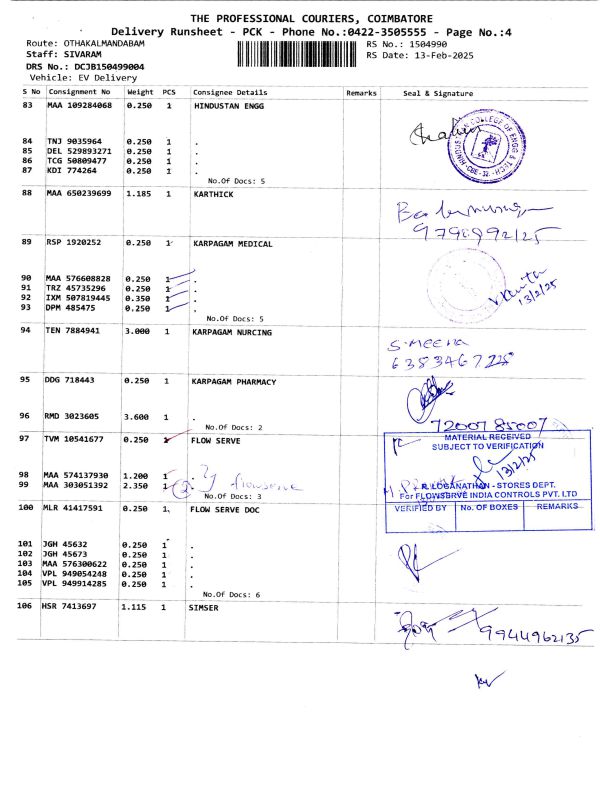 THE PROFESSIONAL COURIERS, COIMBATORE
Delivery Runsheet - PCK - Phone No.:0422-3505555 - Page No.:4
Route: OTHAKALMANDABAM
RS No.: 1504990
Staff: SIVARAM
RS Date: 13-Feb-2025
DRS No.: DCJB150499004
Vehicle: EV Delivery
S No Consignment No Weight PCS Consignee Details Remarks Seal & Signature
83 MAA 109284068 0.250 1 HINDUSTAN ENGG
84 TNJ 9035964 0.250 1 .
85 DEL 529893271 0.250 1 .
86 TCG 50809477 0.250 1 .
87 KDI 774264 0.250 1 .
No.Of Docs: 5
88 MAA 650239699 1.185 1 KARTHICK
89 RSP 1920252 0.250 1 KARPAGAM MEDICAL
90 MAA 576608828 0.250 1 .
91 TRZ 45735296 0.250 1 .
92 IXM 507819445 0.350 1 .
93 DPM 485475 0.250 1 .
13/2/25
No.Of Docs: 5
94 TEN 7884941 3.000 1 KARPAGAM NURCING
S.MEENA
95 DDG 718443 0.250 1 KARPAGAM PHARMACY
96 RMD 3023605 3.600 1 .
No.Of Docs: 2
72007 85007
97 TVM 10541677 0.250 1 FLOW SERVE
MATERIAL RECEIVED
SUBJECT TO VERIFICATION
13/2/25
98 MAA 574137930 1.200 1
99 MAA 303051392 2.350 1 flowserve
No.Of Docs: 3
R. LOGANATHAN - STORES DEPT.
For FLOWSERVE INDIA CONTROLS PVT. LTD
VERIFIED BY No. OF BOXES REMARKS
100 MLR 41417591 0.250 1 FLOW SERVE DOC
101 JGH 45632 0.250 1 .
102 JGH 45673 0.250 1 .
103 MAA 576300622 0.250 1 .
104 VPL 949054248 0.250 1 .
105 VPL 949914285 0.250 1 .
No.Of Docs: 6
106 HSR 7413697 1.115 1 SIMSER
9944962135